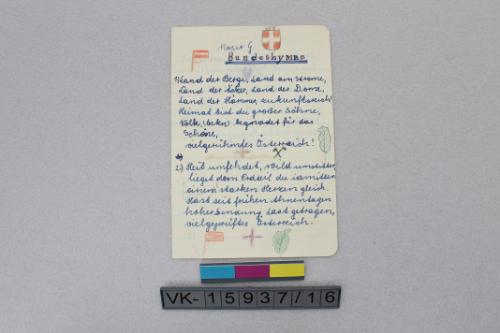 Moser G.
Bundeshymne
1) Land der Berge, Land am Strome,
Land der Äcker, Land der Dome,
Land der Hämmer, zukunftsreich!
Heimat bist du großer Söhne,
Volk, begnadet für das
Schöne,
vielgerühmtes Österreich!
2) Heiß umfehdet, wild umstritten
liegst dem Erdteil du inmitten
einem starken Herzen gleich.
Hast seit frühen Ahnentagen
hoher Sendung Last getragen,
vielgeprüftes Österreich.
VK-15937/16